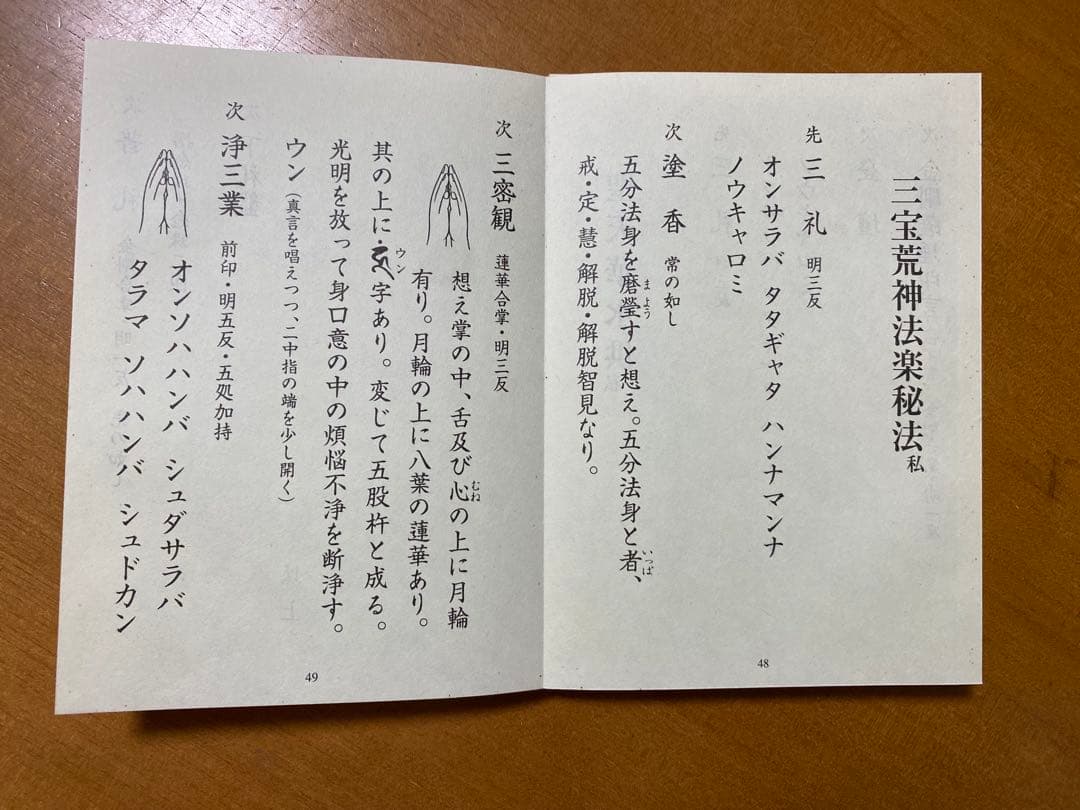 三宝荒神法楽秘法 私
先 三礼 明三反
オンサラバ タタギャタ ハンナマンナ
ノウキャロミ
次 塗香 常の如し
五分法身を磨瑩すと想え。五分法身と者、
まよう
いっぱ
戒・定・慧・解脱・解脱智見なり。
48
次 三密観 蓮華合掌・明三反
想え掌の中、舌及び心の上に月輪
むね
有り。月輪の上に八葉の蓮華あり。
其の上に・𑖮𑖳𑖽字あり。変じて五股杵と成る。
ウン
光明を放って身口意の中の煩悩不浄を断浄す。
ウン（真言を唱えつつ、二中指の端を少し開く）
次 浄三業 前印・明五反・五処加持
オンソハハンバ シュダサラバ
タラマ ソハハンバ シュドカン
49